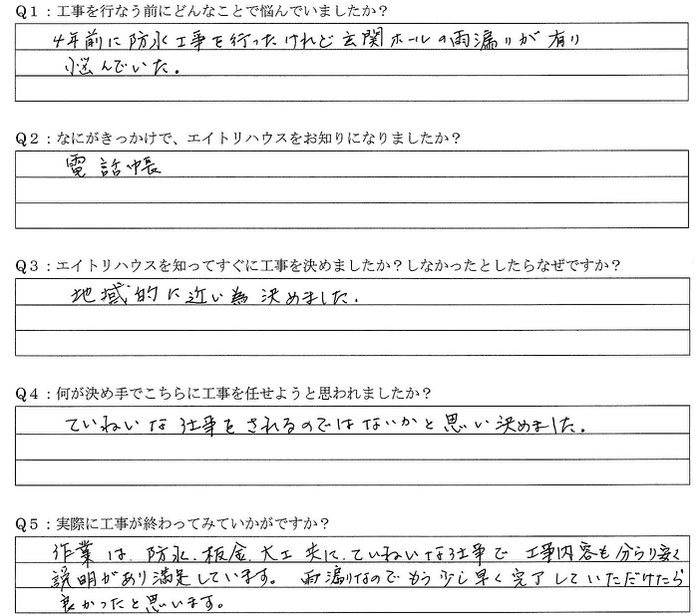 Q1：工事を行なう前にどんなことで悩んでいましたか？
4年前に防水工事を行ったけれど玄関ホールの雨漏りが有り
悩んでいた。
Q2：なにがきっかけで、エイトリハウスをお知りになりましたか？
電話帳
Q3：エイトリハウスを知ってすぐに工事を決めましたか？しなかったとしたらなぜですか？
地域的に近い為決めました。
Q4：何が決め手でこちらに工事を任せようと思われましたか？
ていねいな仕事をされるのではないかと思い決めました。
Q5：実際に工事が終わってみていかがですか？
作業は、防水、板金、大工共に、ていねいな仕事で工事内容も分らり安く
説明があり満足しています。雨漏りなのでもう少し早く完了していただけたら
良かったと思います。